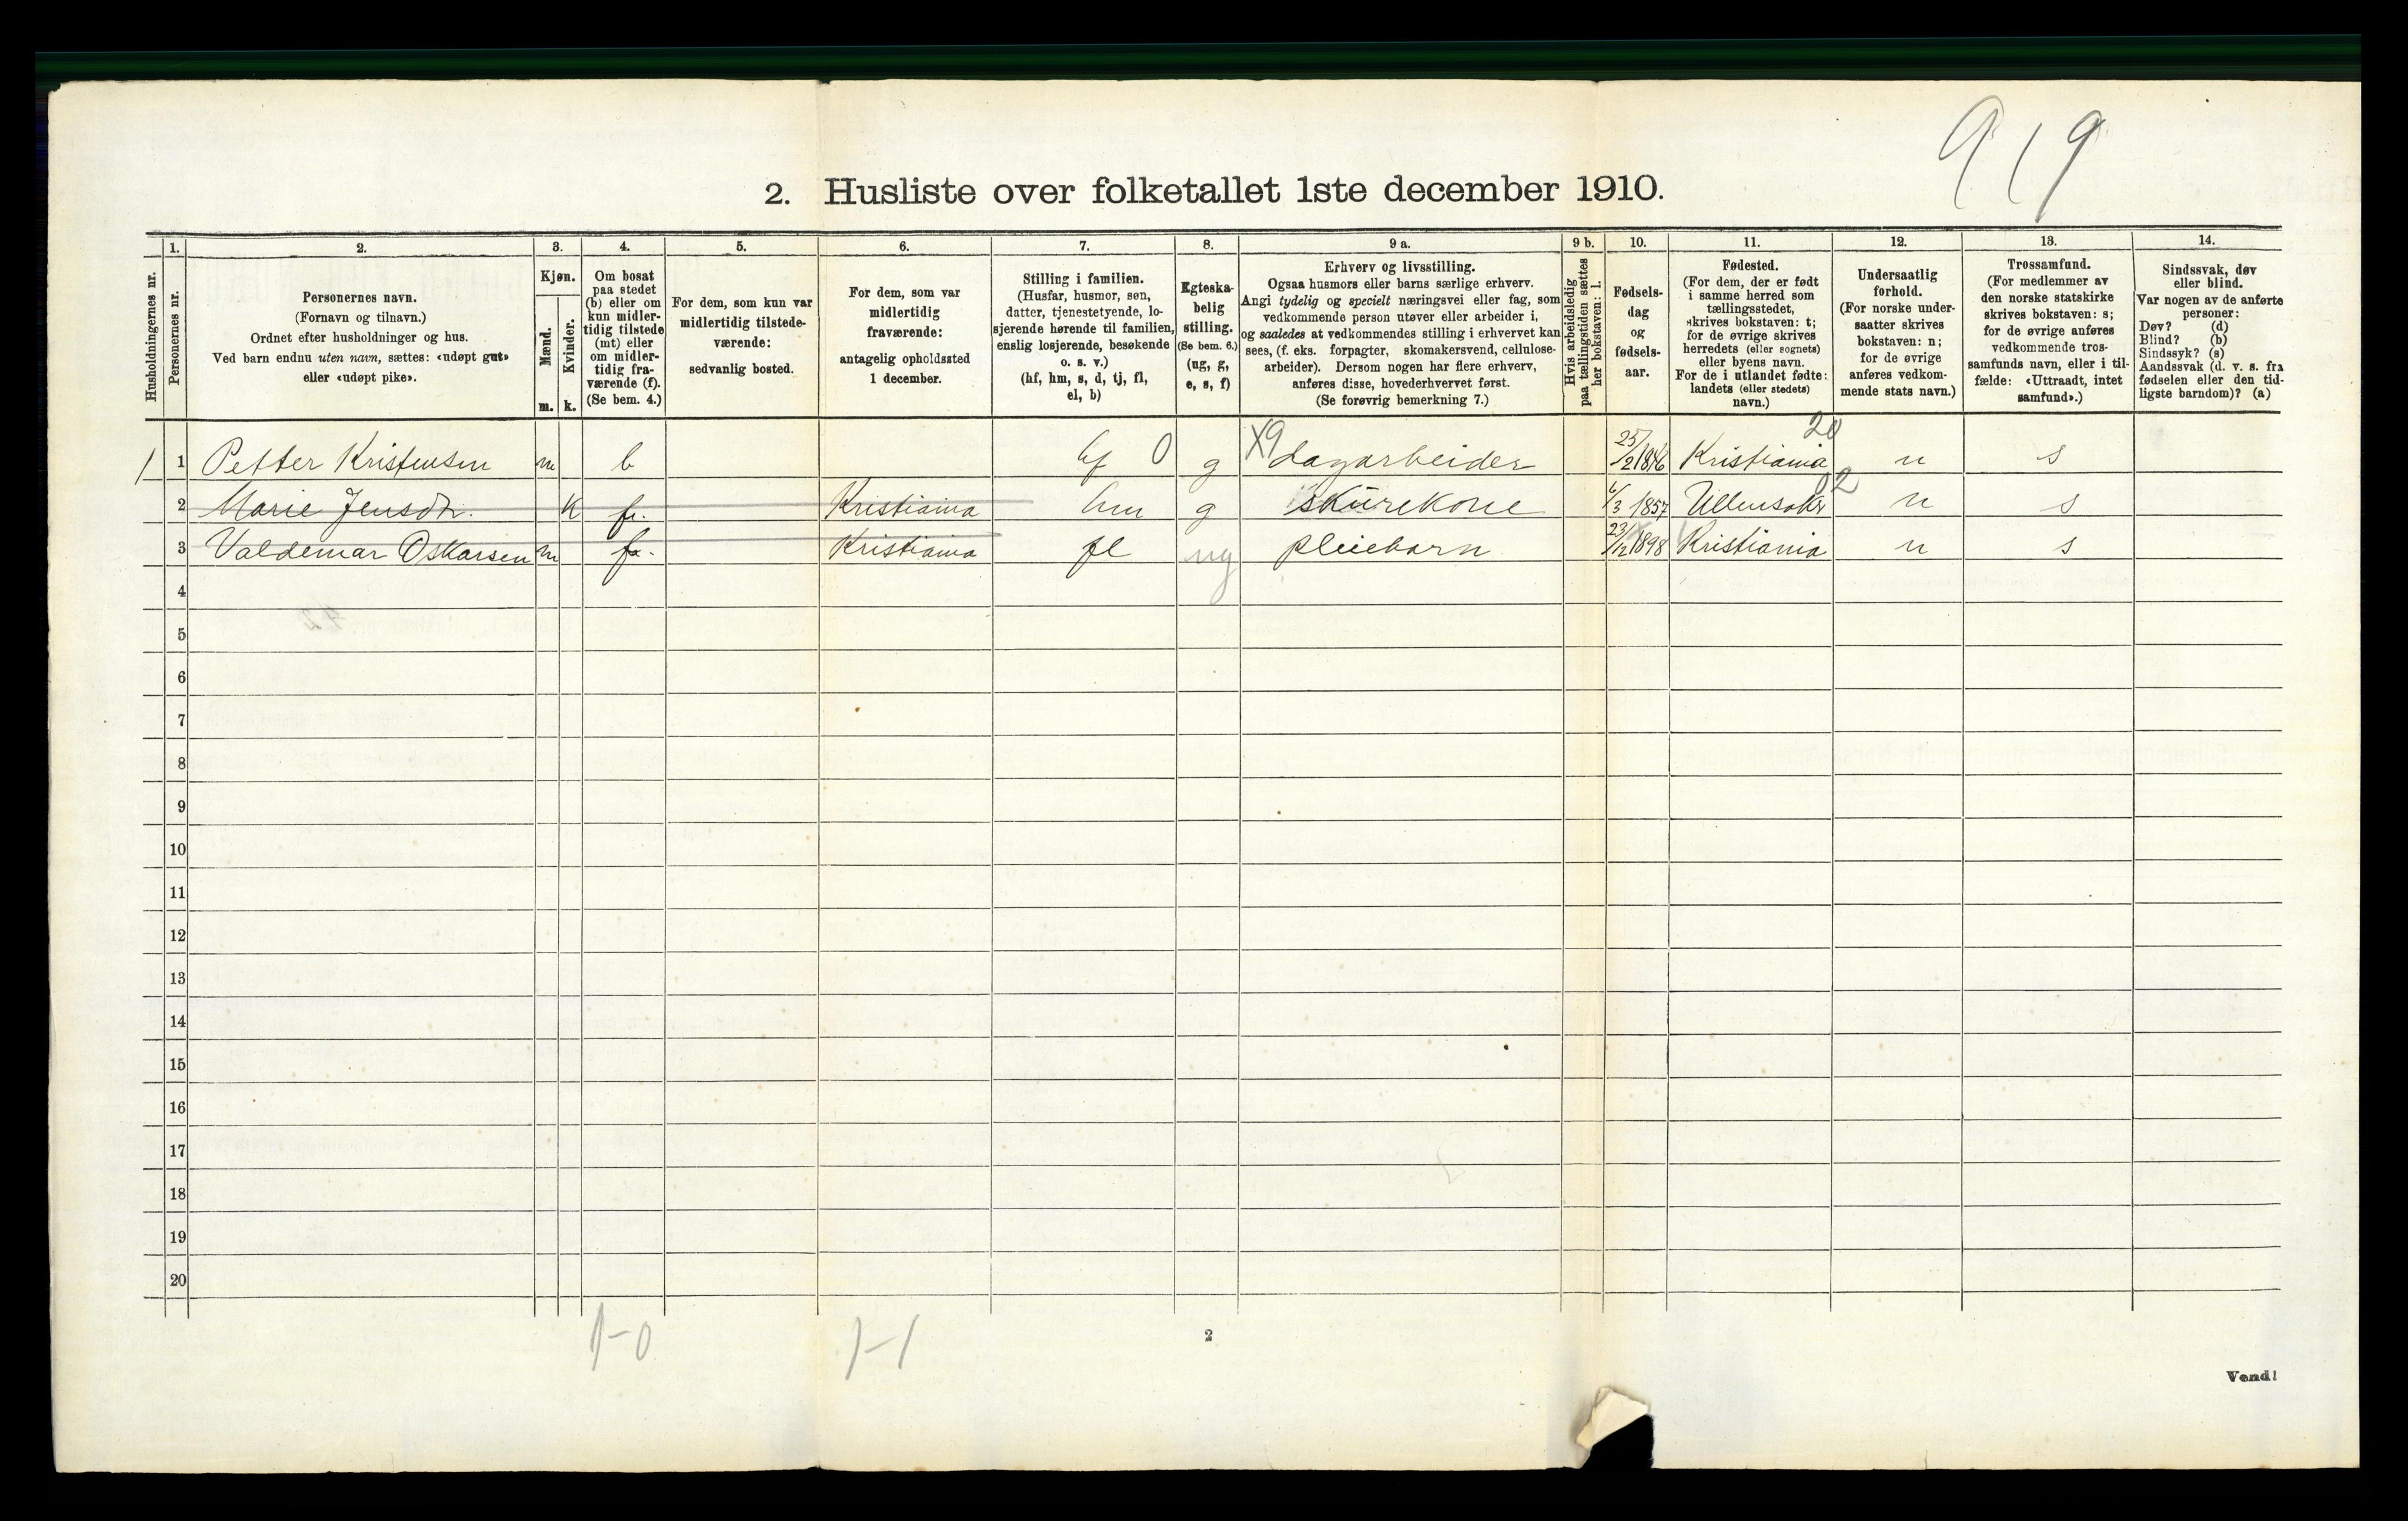 919
2. Husliste over folketallet 1ste december 1910.
Husholdningernes nr.
1. Personernes nr.
2. Personernes navn.
(Fornavn og tilnavn.)
Ordnet efter husholdninger og hus.
Ved barn endnu uten navn, sættes: «udøpt gut»
eller «udøpt pike».
3. Kjøn.
Mænd. m.
Kvinder. k.
4. Om bosat
paa stedet
(b) eller om
kun midler-
tidig tilstede
(mt) eller
om midler-
tidig fra-
værende (f).
(Se bem. 4.)
5. For dem, som kun var
midlertidig tilstede-
værende:
sedvanlig bosted.
6. For dem, som var
midlertidig
fraværende:
antagelig opholdssted
1 december.
7. Stilling i familien.
(Husfar, husmor, søn,
datter, tjenestetyende, lo-
sjerende hørende til familien,
enslig losjerende, besøkende
o. s. v.)
(hf, hm, s, d, tj, fl,
el, b)
8. Egteska-
belig
stilling.
(Se bem. 6.)
(ug, g,
e, s, f)
9 a. Erhverv og livsstilling.
Ogsaa husmors eller barns særlige erhverv.
Angi tydelig og specielt næringsvei eller fag, som
vedkommende person utøver eller arbeider i,
og saaledes at vedkommendes stilling i erhvervet kan
sees, (f. eks. forpagter, skomakersvend, cellulose-
arbeider). Dersom nogen har flere erhverv,
anføres disse, hovederhvervet først.
(Se forøvrig bemerkning 7.)
9 b. Hvis arbeidsledig
paa tællingstiden sættes
her bokstaven: l.
10. Fødsels-
dag
og
fødsels-
aar.
11. Fødested.
(For dem, der er født
i samme herred som
tællingsstedet,
skrives bokstaven: t;
for de øvrige skrives
herredets (eller sognets)
eller byens navn.
For de i utlandet fødte:
landets (eller stedets)
navn.)
12. Undersaatlig
forhold.
(For norske under-
saatter skrives
bokstaven: n;
for de øvrige
anføres vedkom-
mende stats navn.)
13. Trossamfund.
(For medlemmer av
den norske statskirke
skrives bokstaven: s;
for de øvrige anføres
vedkommende tros-
samfunds navn, eller i til-
fælde: «Uttraadt, intet
samfund».)
14. Sindssvak, døv
eller blind.
Var nogen av de anførte
personer:
Døv? (d)
Blind? (b)
Sindssyk? (s)
Aandssvak (d. v. s. fra
fødselen eller den tid-
ligste barndom)? (a)
1 1 Petter Kristensen m b hf 0 g X9 dagarbeider 25/2 Kristiania 20 n s
2 Marie Jensdtr. K fr. Kristiania hm g skurekone 6/3 1857 Ullensaker 02 n s
3 Valdemar Oskarsen m fr. Kristiania fl ug pleiebarn 23/12 1898 Kristiania n s
4
5
6
7
8
9
10
11
12
13
14
15
16
17
18
19
20
1-0 1-1
2
Vend!